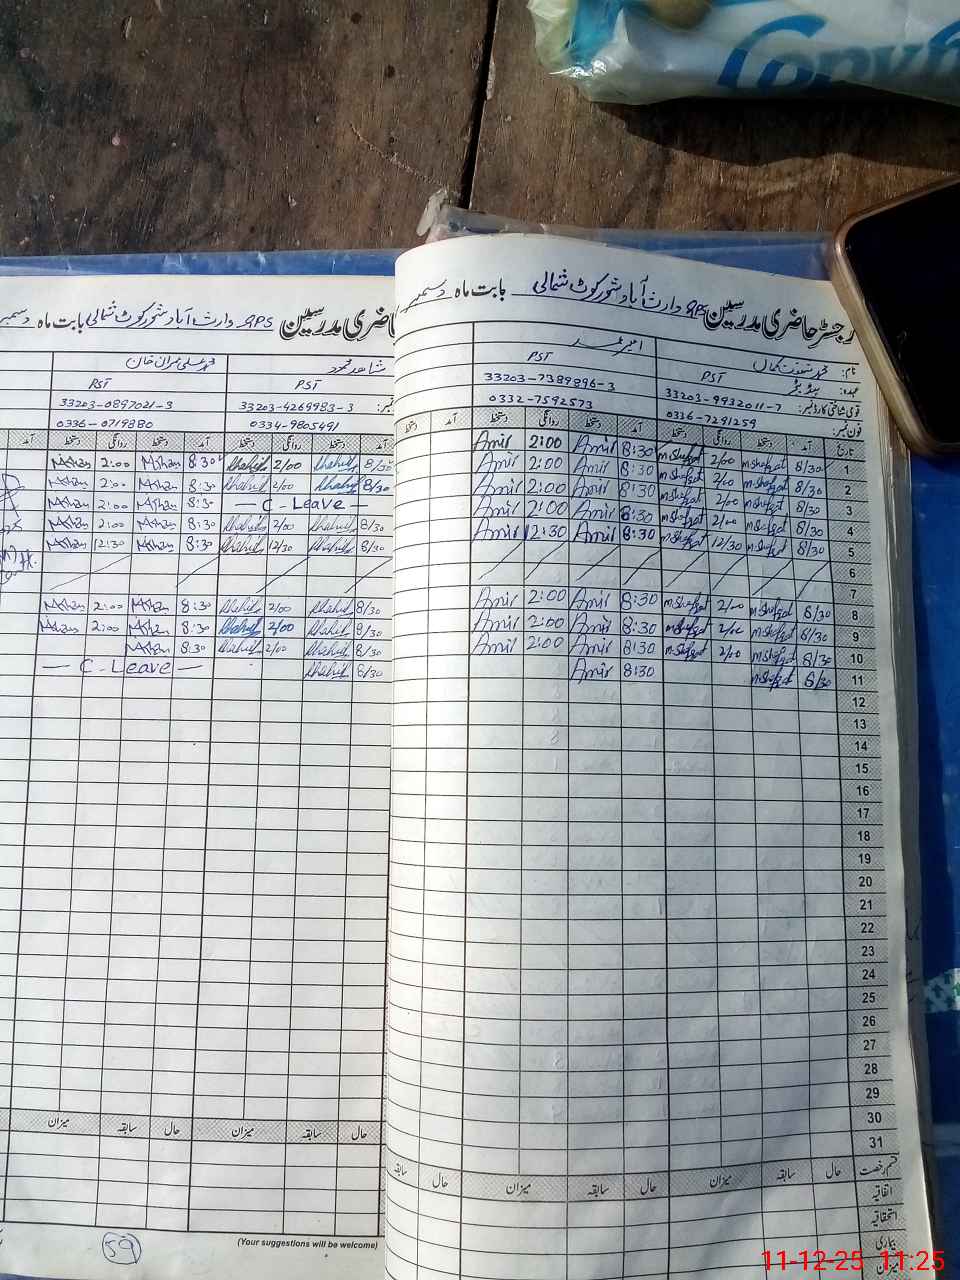 رجسٹر حاضری مدرسین GPS وارث آباد شورکوٹ شمالی بابت ماہ دسمبر
نام: محمد شفقت کمال
امیر
عہدہ: ہیڈ ٹیچر PST
PST
قومی شناختی کارڈ نمبر: 33203-9932011-7
33203-7389896-3
فون نمبر: 0336-7291259
0332-7592573
تاریخ آمد دستخط روانگی دستخط آمد دستخط روانگی دستخط آمد دستخط
1 8/30 m.Shafqat 2/00 m.Shafqat 8:30 Amir 2:00 Amir
2 8/30 m.Shafqat 2/00 m.Shafqat 8:30 Amir 2:00 Amir
3 8/30 m.Shafqat 2/00 m.Shafqat 8:30 Amir 2:00 Amir
4 8/30 m.Shafqat 2/00 m.Shafqat 8:30 Amir 2:00 Amir
5 8/30 m.Shafqat 12/30 m.Shafqat 8:30 Amir 12:30 Amir
6
7
8 8/30 m.Shafqat 2/00 m.Shafqat 8:30 Amir 2:00 Amir
9 8/30 m.Shafqat 2/00 m.Shafqat 8:30 Amir 2:00 Amir
10 8/30 m.Shafqat 2/00 m.Shafqat 8:30 Amir 2:00 Amir
11 8/30 m.Shafqat 8:30 Amir
12
13
14
15
16
17
18
19
20
21
22
23
24
25
26
27
28
29
30
31
قسم رخصت حال سابقہ میزان حال سابقہ میزان حال سابقہ
اتفاقیہ
استحقاقیہ
بیماری
میزان
حاضری مدرسین GPS وارث آباد شورکوٹ شمالی بابت ماہ دسمبر
شاہد محمود
محمد علی عمران خان
PST
PST
33203-4269983-3
33203-0897021-3
0334-9805491
0336-0719880
آمد دستخط روانگی دستخط آمد دستخط روانگی دستخط آمد
8/30 Shahid 2/00 Shahid 8:30 M.Khan 2:00 M.Khan
8/30 Shahid 2/00 Shahid 8:30 M.Khan 2:00 M.Khan
— C - Leave — 8:30 M.Khan 2:00 M.Khan
8/30 Shahid 2/00 Shahid 8:30 M.Khan 2:00 M.Khan
8/30 Shahid 12/30 Shahid 8:30 M.Khan 12:30 M.Khan
8/30 Shahid 2/00 Shahid 8:30 M.Khan 2:00 M.Khan
8/30 Shahid 2/00 Shahid 8:30 M.Khan 2:00 M.Khan
8/30 Shahid 2/00 Shahid 8:30 M.Khan
8/30 Shahid — C - Leave —
حال سابقہ میزان حال سابقہ میزان
(Your suggestions will be welcome)
59
11-12-25 11:25